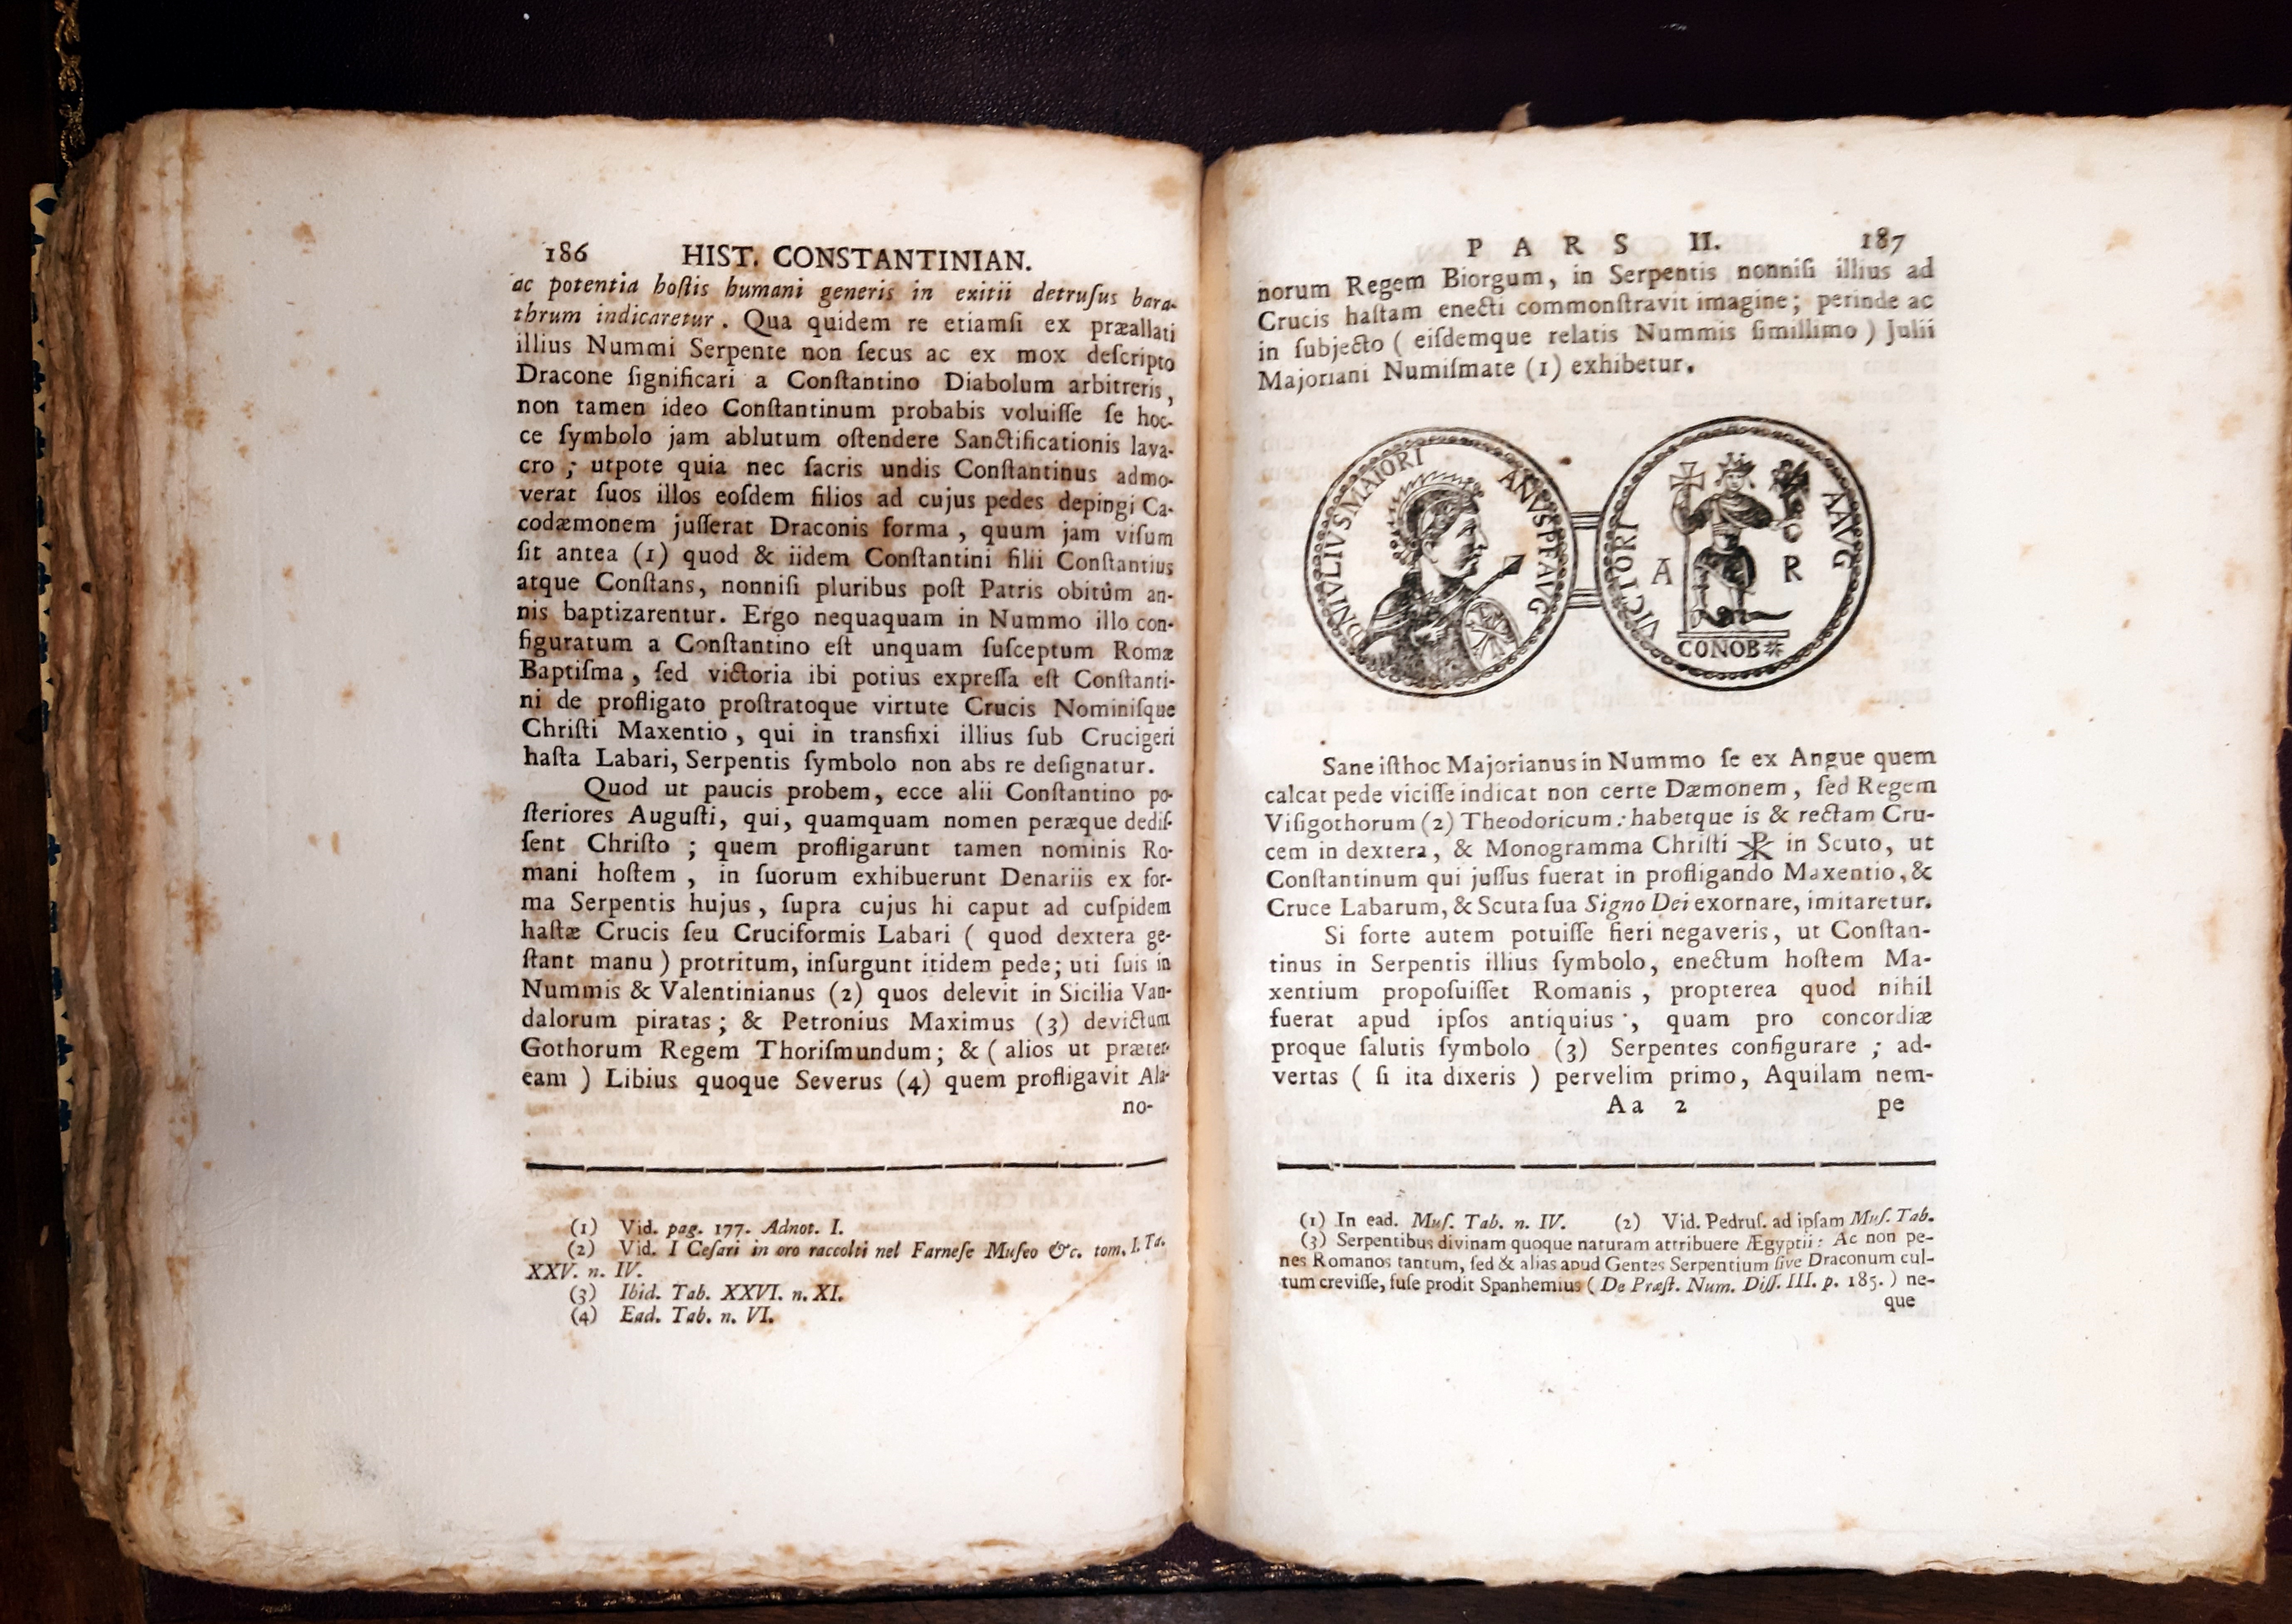 186 HIST. CONSTANTINIAN.
ac potentia hoſtis humani generis in exitii detruſus bara-
thrum indicaretur. Qua quidem re etiamſi ex præallati
illius Nummi Serpente non ſecus ac ex mox deſcripto
Dracone ſignificari a Conſtantino Diabolum arbitreris,
non tamen ideo Conſtantinum probabis voluiſſe ſe hoc-
ce ſymbolo jam ablutum oſtendere Sanctificationis lava-
cro; utpote quia nec ſacris undis Conſtantinus admo-
verat ſuos illos eoſdem filios ad cujus pedes depingi Ca-
codæmonem juſſerat Draconis forma, quum jam viſum
ſit antea (1) quod & iidem Conſtantini filii Conſtantius
atque Conſtans, nonniſi pluribus poſt Patris obitûm an-
nis baptizarentur. Ergo nequaquam in Nummo illo con-
figuratum a Conſtantino eſt unquam ſuſceptum Romæ
Baptiſma, ſed victoria ibi potius expreſſa eſt Conſtanti-
ni de profligato proſtratoque virtute Crucis Nominiſque
Chriſti Maxentio, qui in transfixi illius ſub Crucigeri
haſta Labari, Serpentis ſymbolo non abs re deſignatur.
Quod ut paucis probem, ecce alii Conſtantino po-
ſteriores Auguſti, qui, quamquam nomen peræque dediſ-
ſent Chriſto; quem profligarunt tamen nominis Ro-
mani hoſtem, in ſuorum exhibuerunt Denariis ex for-
ma Serpentis hujus, ſupra cujus hi caput ad cuſpidem
haſtæ Crucis ſeu Cruciformis Labari (quod dextera ge-
ſtant manu) protritum, inſurgunt itidem pede; uti ſuis in
Nummis & Valentinianus (2) quos delevit in Sicilia Van-
dalorum piratas; & Petronius Maximus (3) devictum
Gothorum Regem Thoriſmundum; & (alios ut præter-
eam) Libius quoque Severus (4) quem profligavit Ala-
no-
(1) Vid. pag. 177. Adnot. I.
(2) Vid. I Ceſari in oro raccolti nel Farneſe Muſeo &c. tom. I. Ta.
XXV. n. IV.
(3) Ibid. Tab. XXVI. n. XI.
(4) Ead. Tab. n. VI.
PARS II. 187
norum Regem Biorgum, in Serpentis nonniſi illius ad
Crucis haſtam enecti commonſtravit imagine; perinde ac
in ſubjecto (eiſdemque relatis Nummis ſimillimo) Julii
Majoriani Numiſmate (1) exhibetur.
DNIVLIVSMAIORI ANVSPFAVG
VICTORI AAVG
A R
CONOB*
Sane iſthoc Majorianus in Nummo ſe ex Angue quem
calcat pede viciſſe indicat non certe Dæmonem, ſed Regem
Viſigothorum (2) Theodoricum: habetque is & rectam Cru-
cem in dextera, & Monogramma Chriſti ☧ in Scuto, ut
Conſtantinum qui juſſus fuerat in profligando Maxentio, &
Cruce Labarum, & Scuta ſua Signo Dei exornare, imitaretur.
Si forte autem potuiſſe fieri negaveris, ut Conſtan-
tinus in Serpentis illius ſymbolo, enectum hoſtem Ma-
xentium propoſuiſſet Romanis, propterea quod nihil
fuerat apud ipſos antiquius, quam pro concordiæ
proque ſalutis ſymbolo (3) Serpentes configurare; ad-
vertas (ſi ita dixeris) pervelim primo, Aquilam nem-
Aa 2 pe
(1) In ead. Muſ. Tab. n. IV. (2) Vid. Pedruſ. ad ipſam Muſ. Tab.
(3) Serpentibus divinam quoque naturam attribuere Ægyptii: Ac non pe-
nes Romanos tantum, ſed & alias apud Gentes Serpentium ſive Draconum cul-
tum creviſſe, fuſe prodit Spanhemius (De Præſt. Num. Diſſ. III. p. 185.) ne-
que